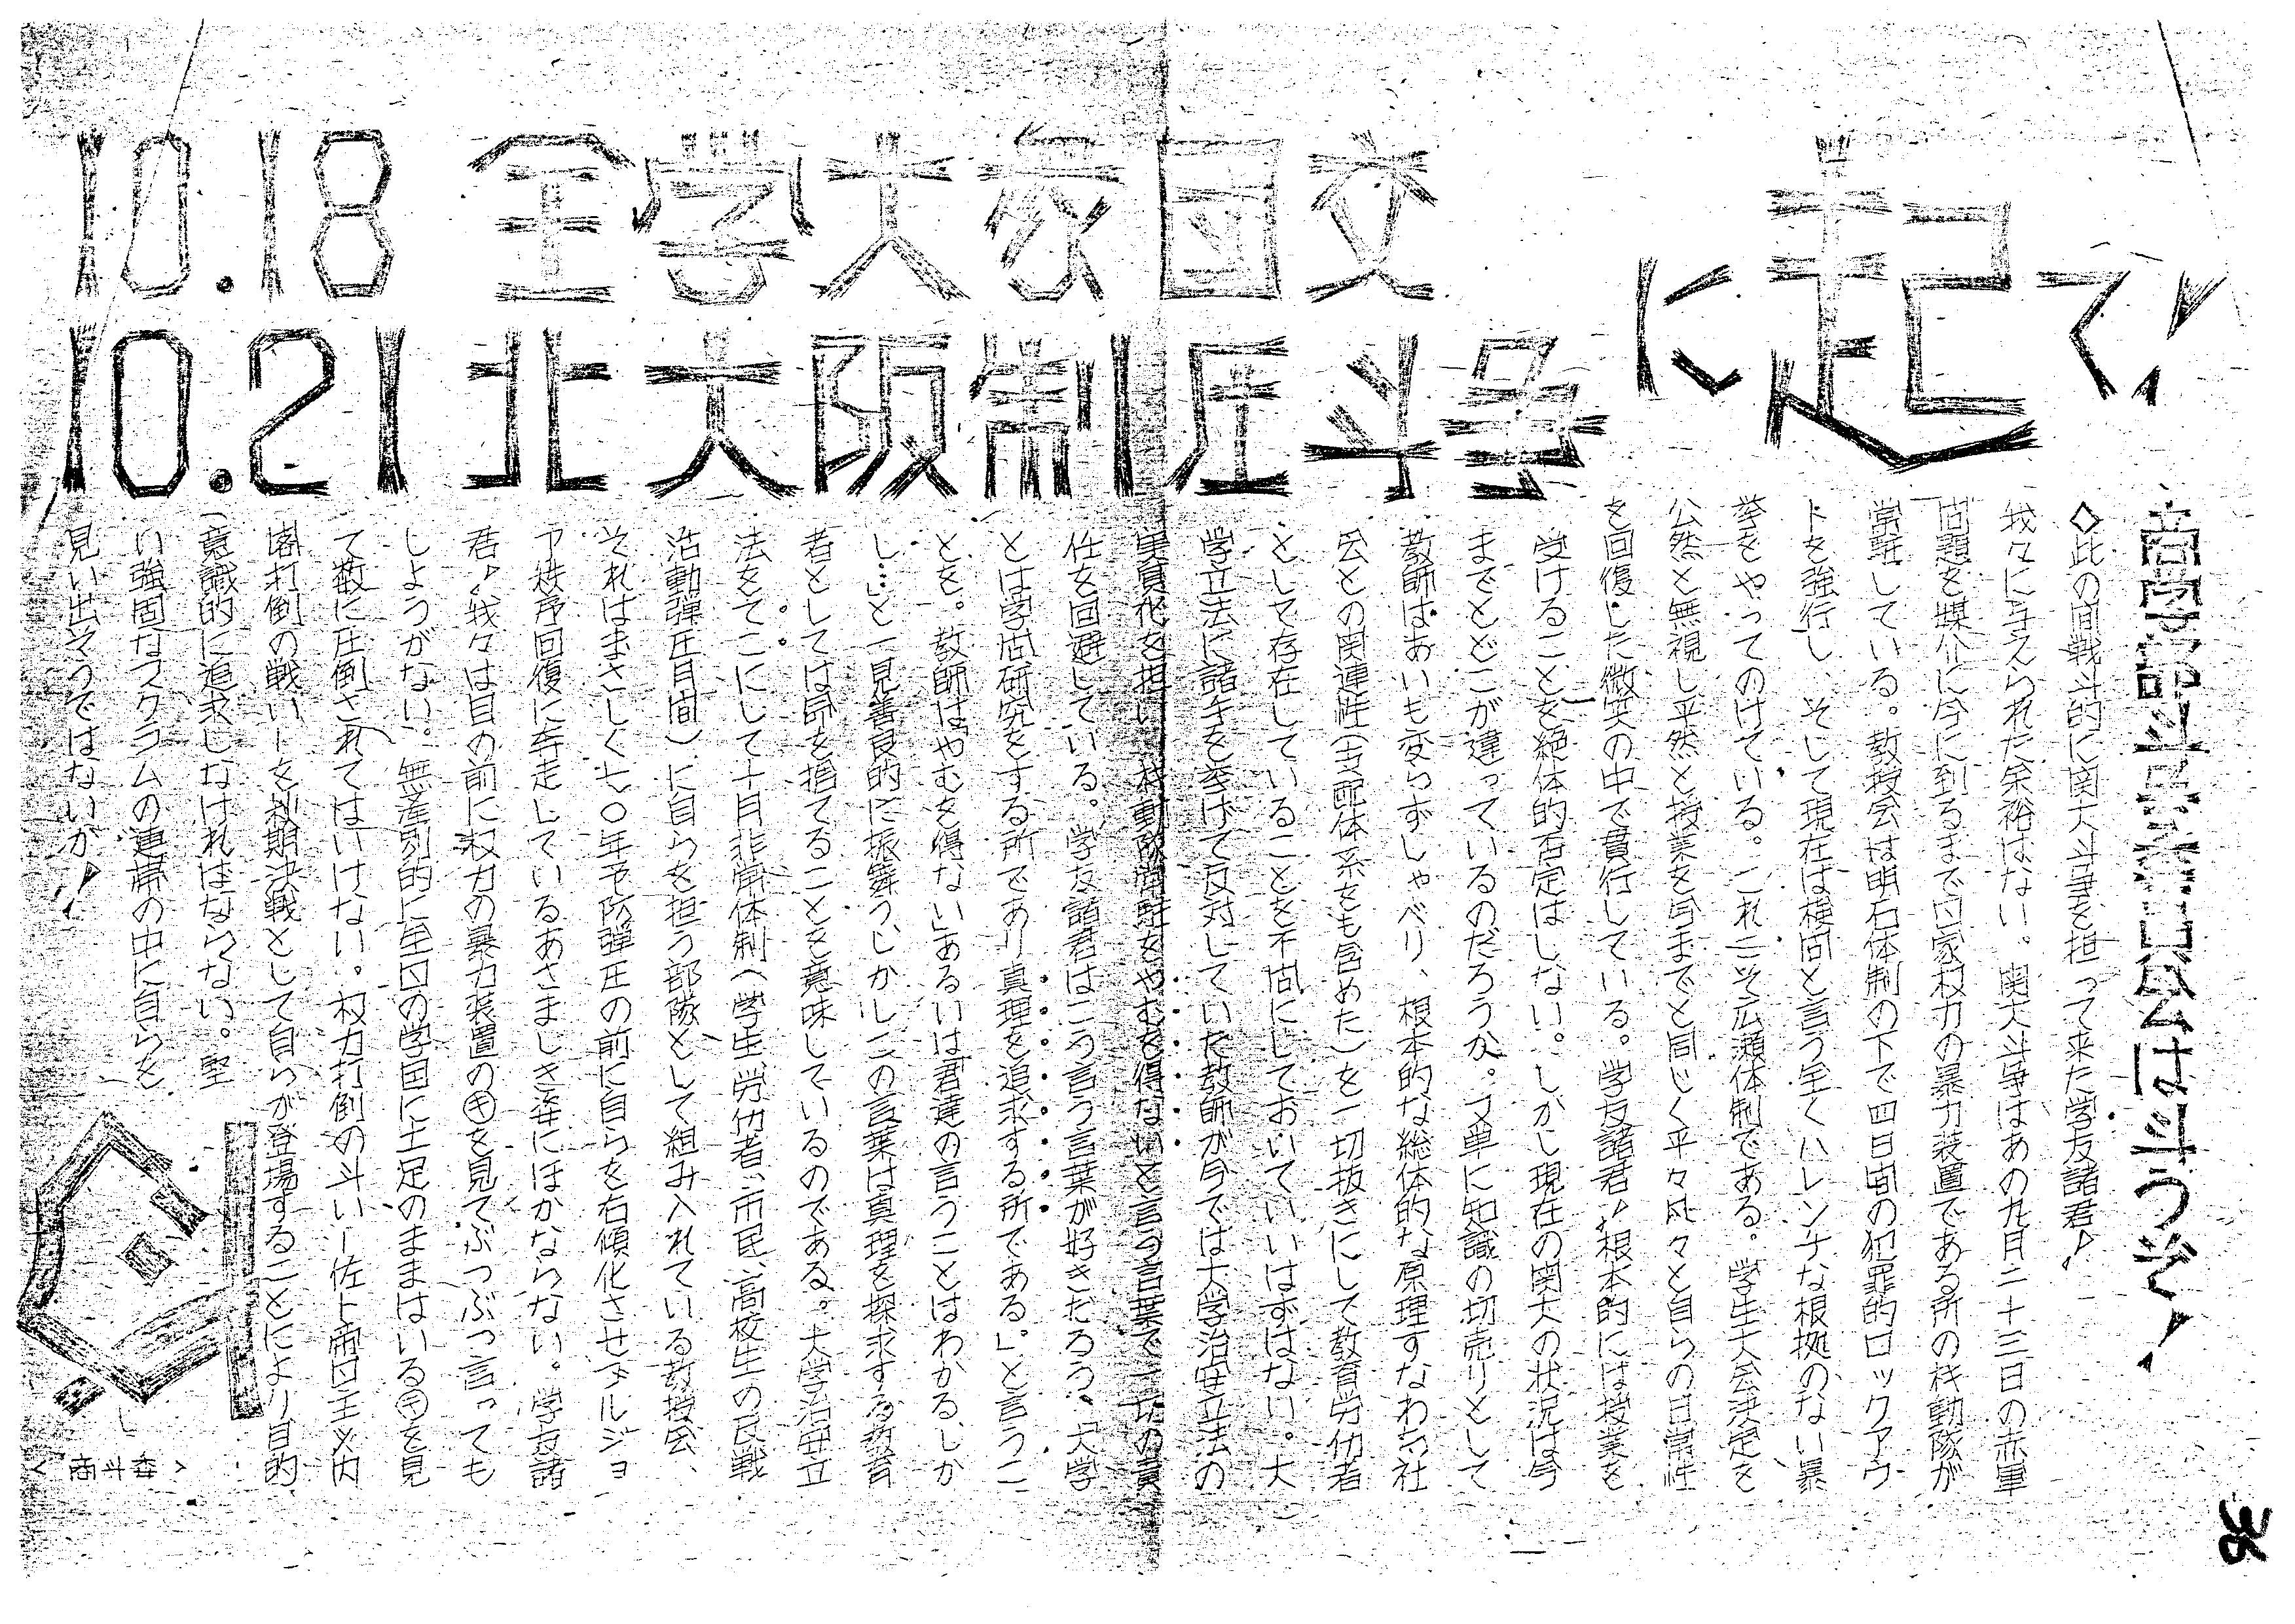 10.18 全学大衆団交
10.21 北大阪制圧斗争
に起て!
商学部斗争委員会は斗うぞ!
◇此の間戦斗的に関大斗争を担って来た学友諸君!
我々に与えられた余裕はない。関大斗争はあの九月二十三日の赤軍
問題を媒介に今に到るまで国家权力の暴力装置である所の機動隊が
常駐している。教授会は明石体制の下で四日間の犯罪的ロックアウ
トを強行し、そして現在は検問と言う全くハレンチな根拠のない暴
挙をやってのけている。これこそ広瀬体制である。学生大会決定を
公然と無視し平然と授業を今までと同じく平々凡々と自らの日常性
を回復した微笑の中で貫行している。学友諸君!根本的には授業を
受けることを絶体的否定はしない。しかし現在の関大の状況は今
までとどこが違っているのだろうか。又単に知識の切売りとして
教師はあいも変らずしゃべり、根本的な総体的な原理すなわち社
会との関連性(支配体系をも含めた)を一切抜きにして教育労仂者
として存在していることを不問にしておいていいはずはない。大
学立法に諸手を挙げて反対していた教師が今では大学治安立法の
実質化を担い、機動隊常駐をやむを得ないと言う言葉で一切の責
任を回避している。学友諸君はこう言う言葉が好きだろう。「大学
とは学問研究をする所であり真理を追求する所である。」と言うこ
とを。教師は「やむを得ない」あるいは「君達の言うことはわかる、しか
し…」と一見善良的に振舞う。しかしこの言葉は真理を探求する教育
者としては命を捨てることを意味しているのである。大学治安立
法をてこにして十月非常体制(学生、労仂者、市民、高校生の反戦
活動弾圧月間)に自らを担う部隊として組み入れている教授会、
それはまさしく七〇年予防弾圧の前に自らを右傾化させブルジョ
ア秩序回復に奔走しているあさましき姿にほかならない。学友諸
君!我々は目の前に权力の暴力装置の㋖を見てぶつぶつ言っても
しようがない。無差別的に全国の学園に土足のままはいる㋖を見
て数に圧倒されてはいけない。权力打倒の斗い―佐ト帝国主义内
閣打倒の戦い―を秋期決戦として自らが登場することにより目的
意識的に追求しなければならない。堅
い強固なスクラムの連帯の中に自らを
見い出そうではないか!!
<商斗委>